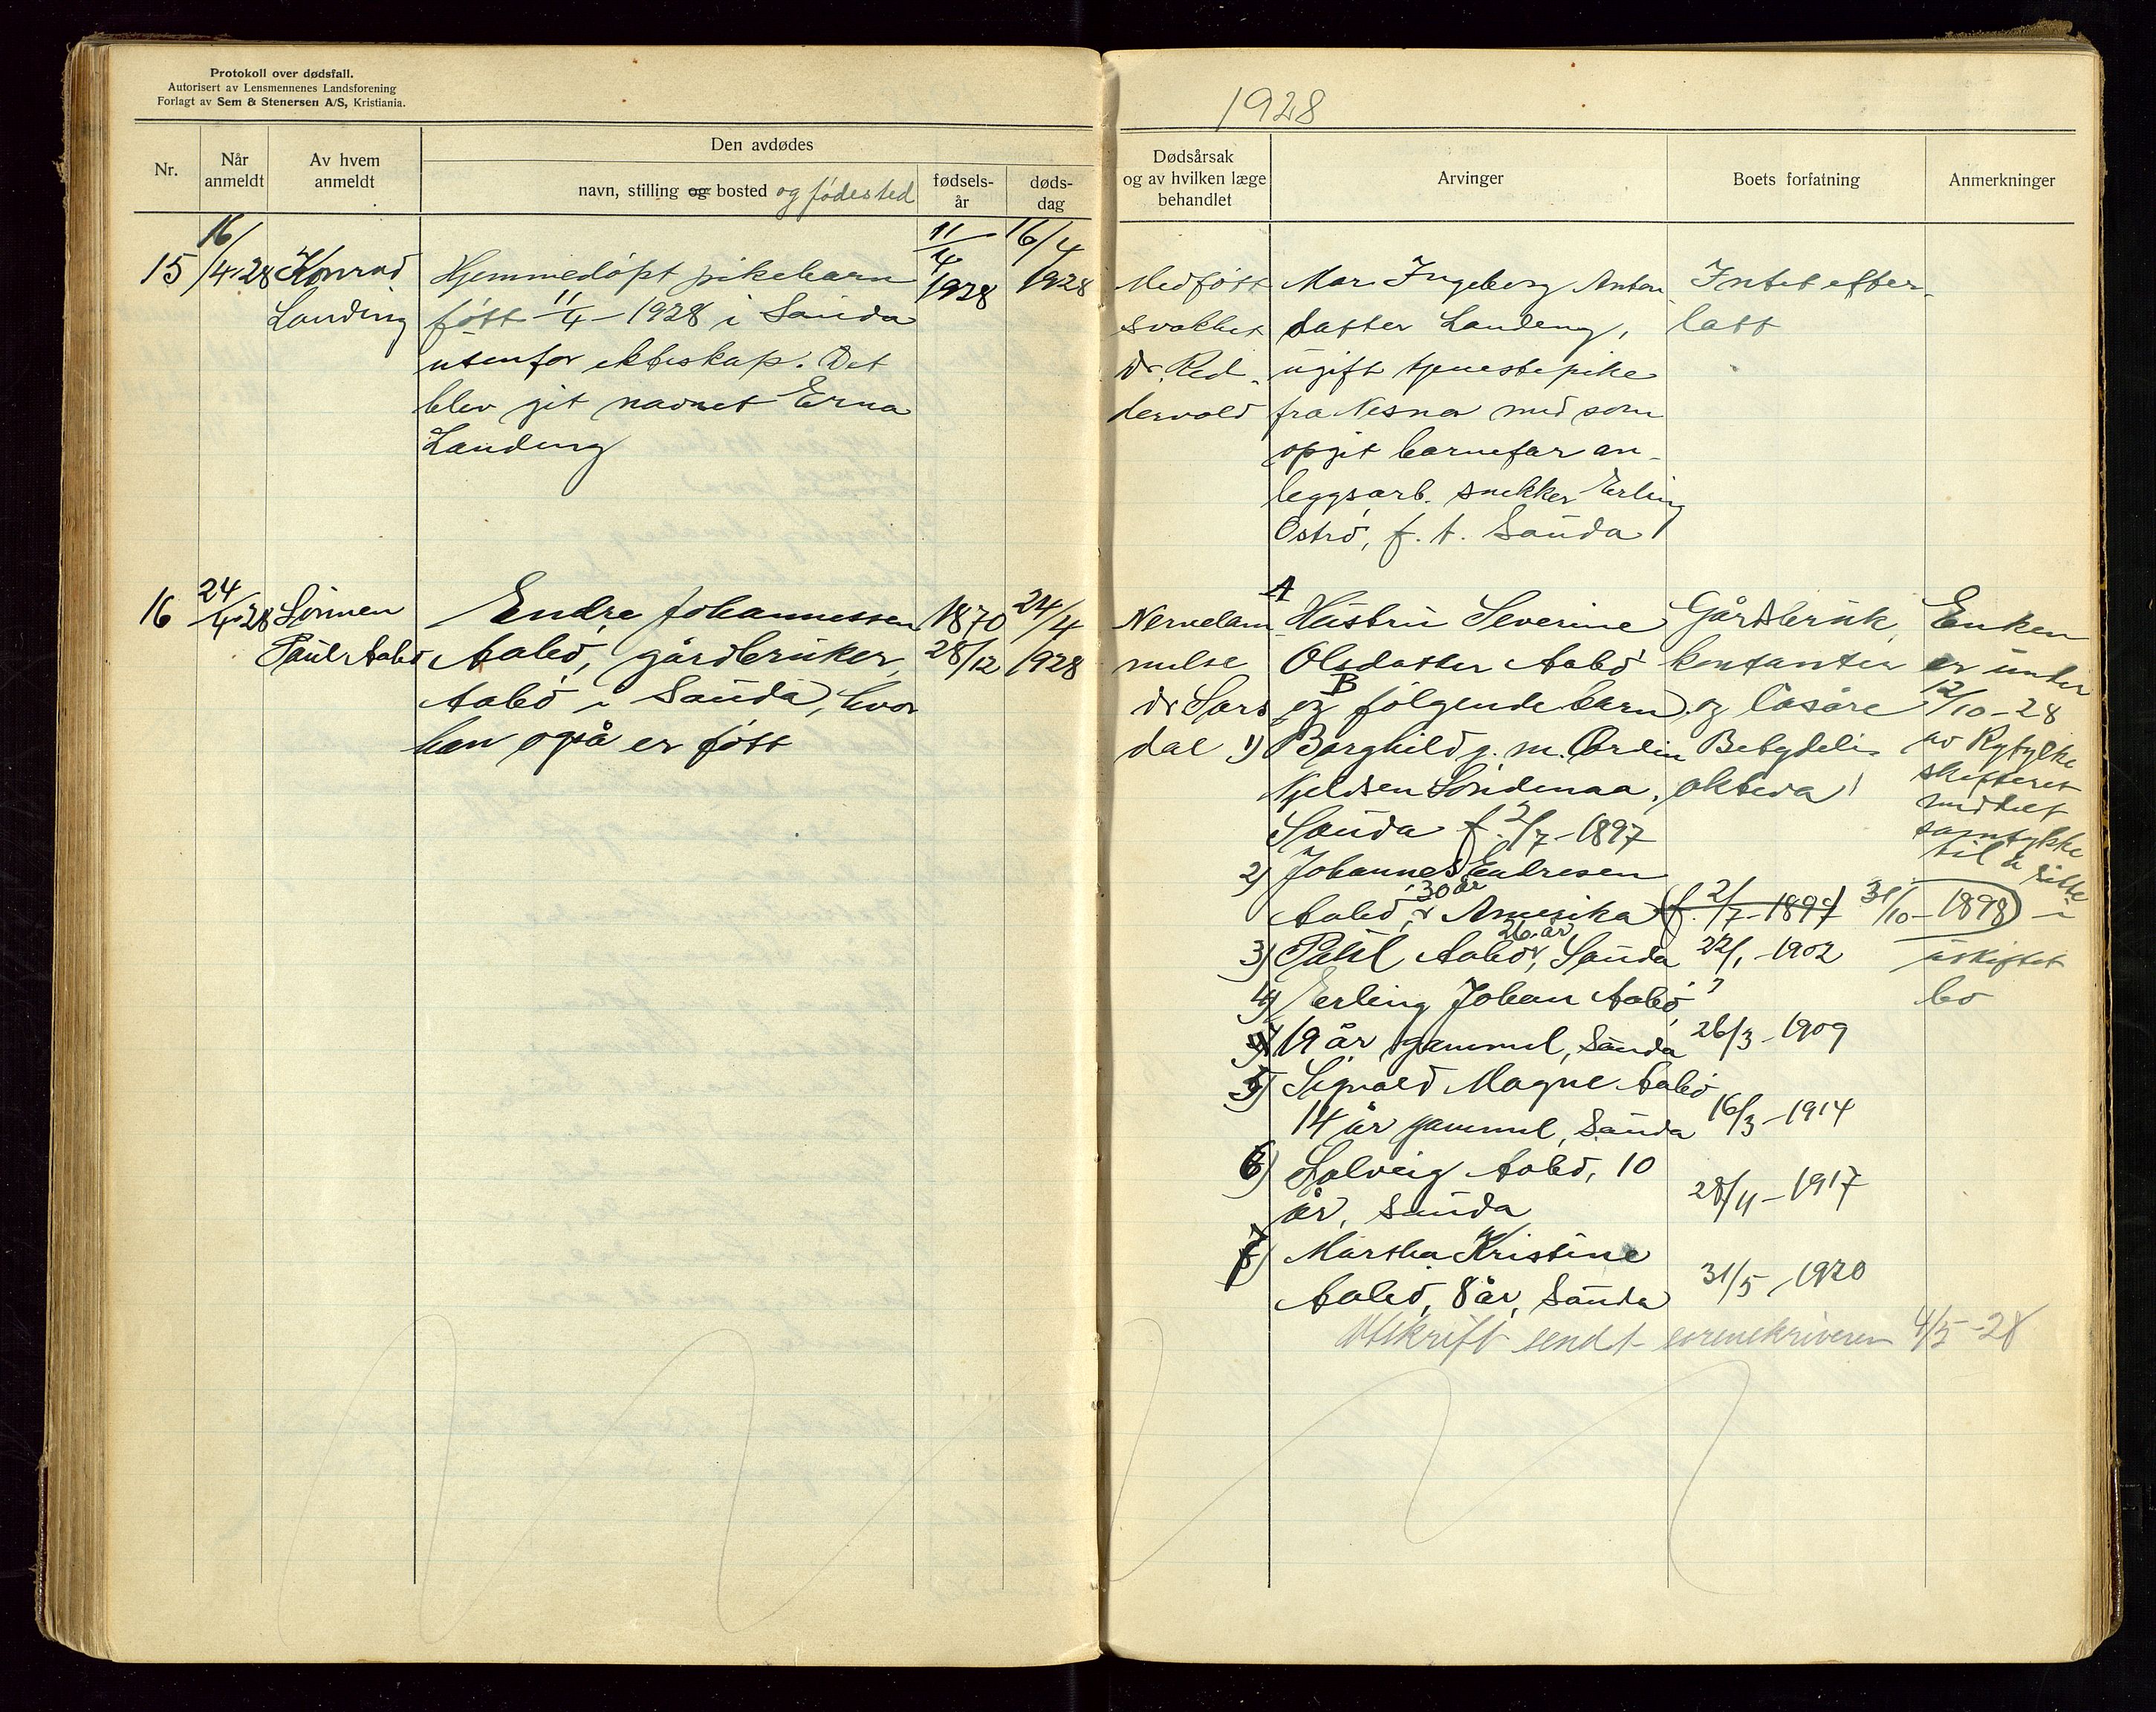 Protokoll over dødsfall.
Autorisert av Lensmennenes Landsforening
Forlagt av Sem & Stenersen A/S, Kristiania.
Nr.
Når
anmeldt
Av hvem
anmeldt
Den avdødes
navn, stilling og bosted og fødested
fødsels-
år
døds-
dag
15
16/4-28
Konrad
Landeng
Hjemmedøpt pikebarn
født 11/4-1928 i Sauda
utenfor ekteskap. Det
blev git navnet Erna
Landeng
11/4
1928
16/4
1928
16
24/4-28
Sønnen
Paul Aabø
Endre Johannessen
Aabø, gårdbruker,
Aabø i Sauda, hvor
han også er født
1870
28/12
24/4
1928
1928
Dødsårsak
og av hvilken læge
behandlet
Arvinger
Boets forfatning
Anmerkninger
Medfødt
svakhet
Dr. Red-
dervold
Mor Ingeborg Anton
datter Landeng,
ugift tjenestepike
fra Nesna med som
opgit barnefar an-
leggsarb. snekker Erling
Østrø, f. t. Sauda
Intet efter-
latt
Nervelam-
melse
dr Sørs
dal
A
Hustru Severine
Olsdatter Aabø
B
og følgende barn
1) Borghild g. m. Ordin
Kjeldsen Søndenaa,
Sauda f. 2/7-1897
2) Johannes Endresen
30 år
Aabø, Amerika (f. 2/7-1897 31/10-1898)
26 år
3) Paul Aabø, Sauda 22/1-1902
4) Erling Johan Aabø,
19 år gammel, Sauda 26/3-1909
5) Sigvald Magne Aabø
14 år gammel, Sauda 16/3-1914
6) Solveig Aabø, 10
år, Sauda 28/11-1917
7) Martha Kristine
Aabø, 8 år, Sauda 31/5-1920
Gårdsbruk,
kontanter
og løsøre
Betydelig
aktiva
Enken
er under
12/10-28
av Ryfylke
skifteret
meddelt
samtykke
til å sitte
i
uskiftet
bo
Utskrift sendt sorenskriveren 4/5-28